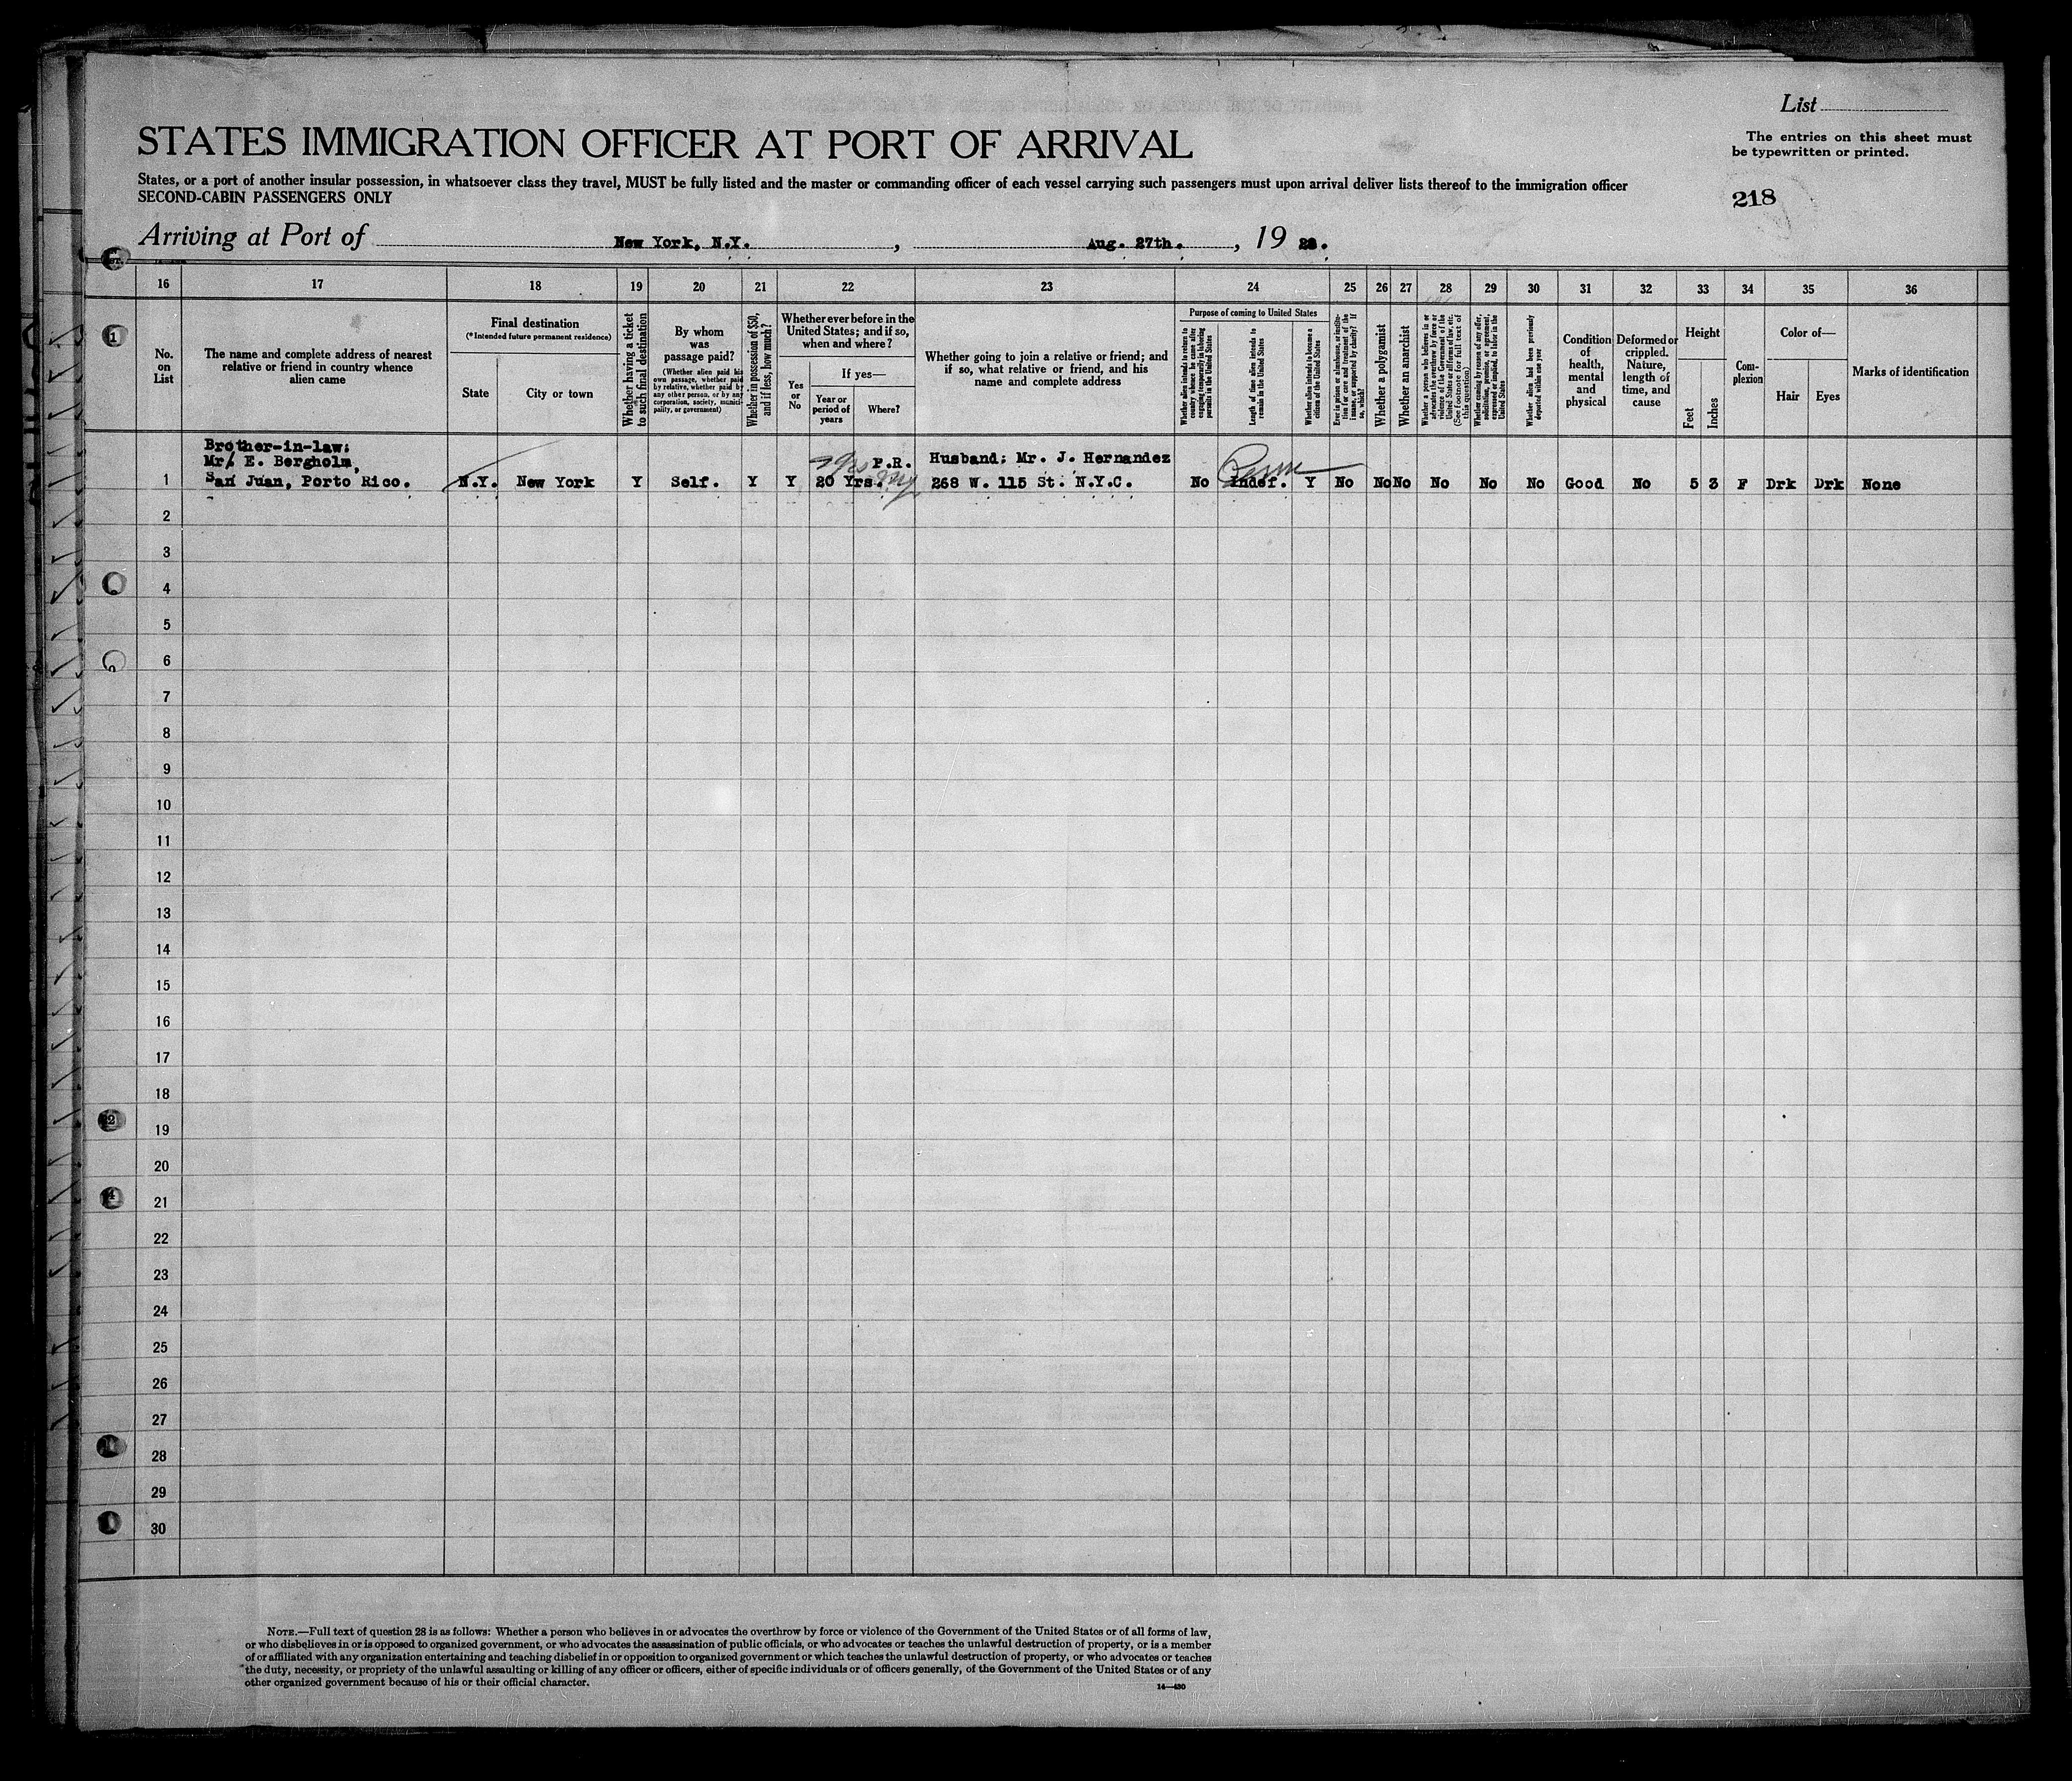 List
STATES IMMIGRATION OFFICER AT PORT OF ARRIVAL
The entries on this sheet must
be typewritten or printed.
States, or a port of another insular possession, in whatsoever class they travel, MUST be fully listed and the master or commanding officer of each vessel carrying such passengers must upon arrival deliver lists thereof to the immigration officer
SECOND-CABIN PASSENGERS ONLY
218
Arriving at Port of New York, N.Y. , Aug. 27th. , 19
16 17 18 19 20 21 22 23 24 25 26 27 28 29 30 31 32 33 34 35 36
No.
on
List
The name and complete address of nearest
relative or friend in country whence
alien came
Final destination
(*Intended future permanent residence)
State
City or town
Whether having a ticket
to such final destination
By whom
was
passage paid?
(Whether alien paid his
own passage, whether paid
by relative, whether paid by
any other person, or by any
corporation, society, munici-
pality, or government)
Whether in possession of $50,
and if less, how much?
Whether ever before in the
United States; and if so,
when and where?
Yes
or
No
If yes—
Year or
period of
years
Where?
Whether going to join a relative or friend; and
if so, what relative or friend, and his
name and complete address
Purpose of coming to United States
Whether alien intends to return to
country whence he came after
engaging temporarily in laboring
pursuits in the United States
Length of time alien intends to
remain in the United States
Whether alien intends to become a
citizen of the United States
Ever in prison or almshouse, or institu-
tion for care and treatment of the
insane, or supported by charity? If
so, which?
Whether a polygamist
Whether an anarchist
Whether a person who believes in or
advocates the overthrow by force or
violence of the Government of the
United States or all forms of law, etc.
(See footnote for full text of
this question)
Whether coming by reason of any offer,
solicitation, promise, or agreement,
expressed or implied, to labor in the
United States
Whether alien had been previously
deported within one year
Condition
of
health,
mental
and
physical
Deformed or
crippled.
Nature,
length of
time, and
cause
Height
Feet
Inches
Com-
plexion
Color of—
Hair
Eyes
Marks of identification
Brother-in-law:
Mr. E. Bergholm, P.R. Husband: Mr. J. Hernandez
1 San Juan, Porto Rico. N.Y. New York Y Self. Y Y 20 Yrs. 268 W. 115 St. N.Y.C. No Indef. Y No No No No No No Good No 5 3 F Drk Drk None
Perm
2
3
4
5
6
7
8
9
10
11
12
13
14
15
16
17
18
19
20
21
22
23
24
25
26
27
28
29
30
NOTE.—Full text of question 28 is as follows: Whether a person who believes in or advocates the overthrow by force or violence of the Government of the United States or of all forms of law,
or who disbelieves in or is opposed to organized government, or who advocates the assassination of public officials, or who advocates or teaches the unlawful destruction of property, or is a member
of or affiliated with any organization entertaining and teaching disbelief in or opposition to organized government or which teaches the unlawful destruction of property, or who advocates or teaches
the duty, necessity, or propriety of the unlawful assaulting or killing of any officer or officers, either of specific individuals or of officers generally, of the Government of the United States or of any
other organized government because of his or their official character.
14—430